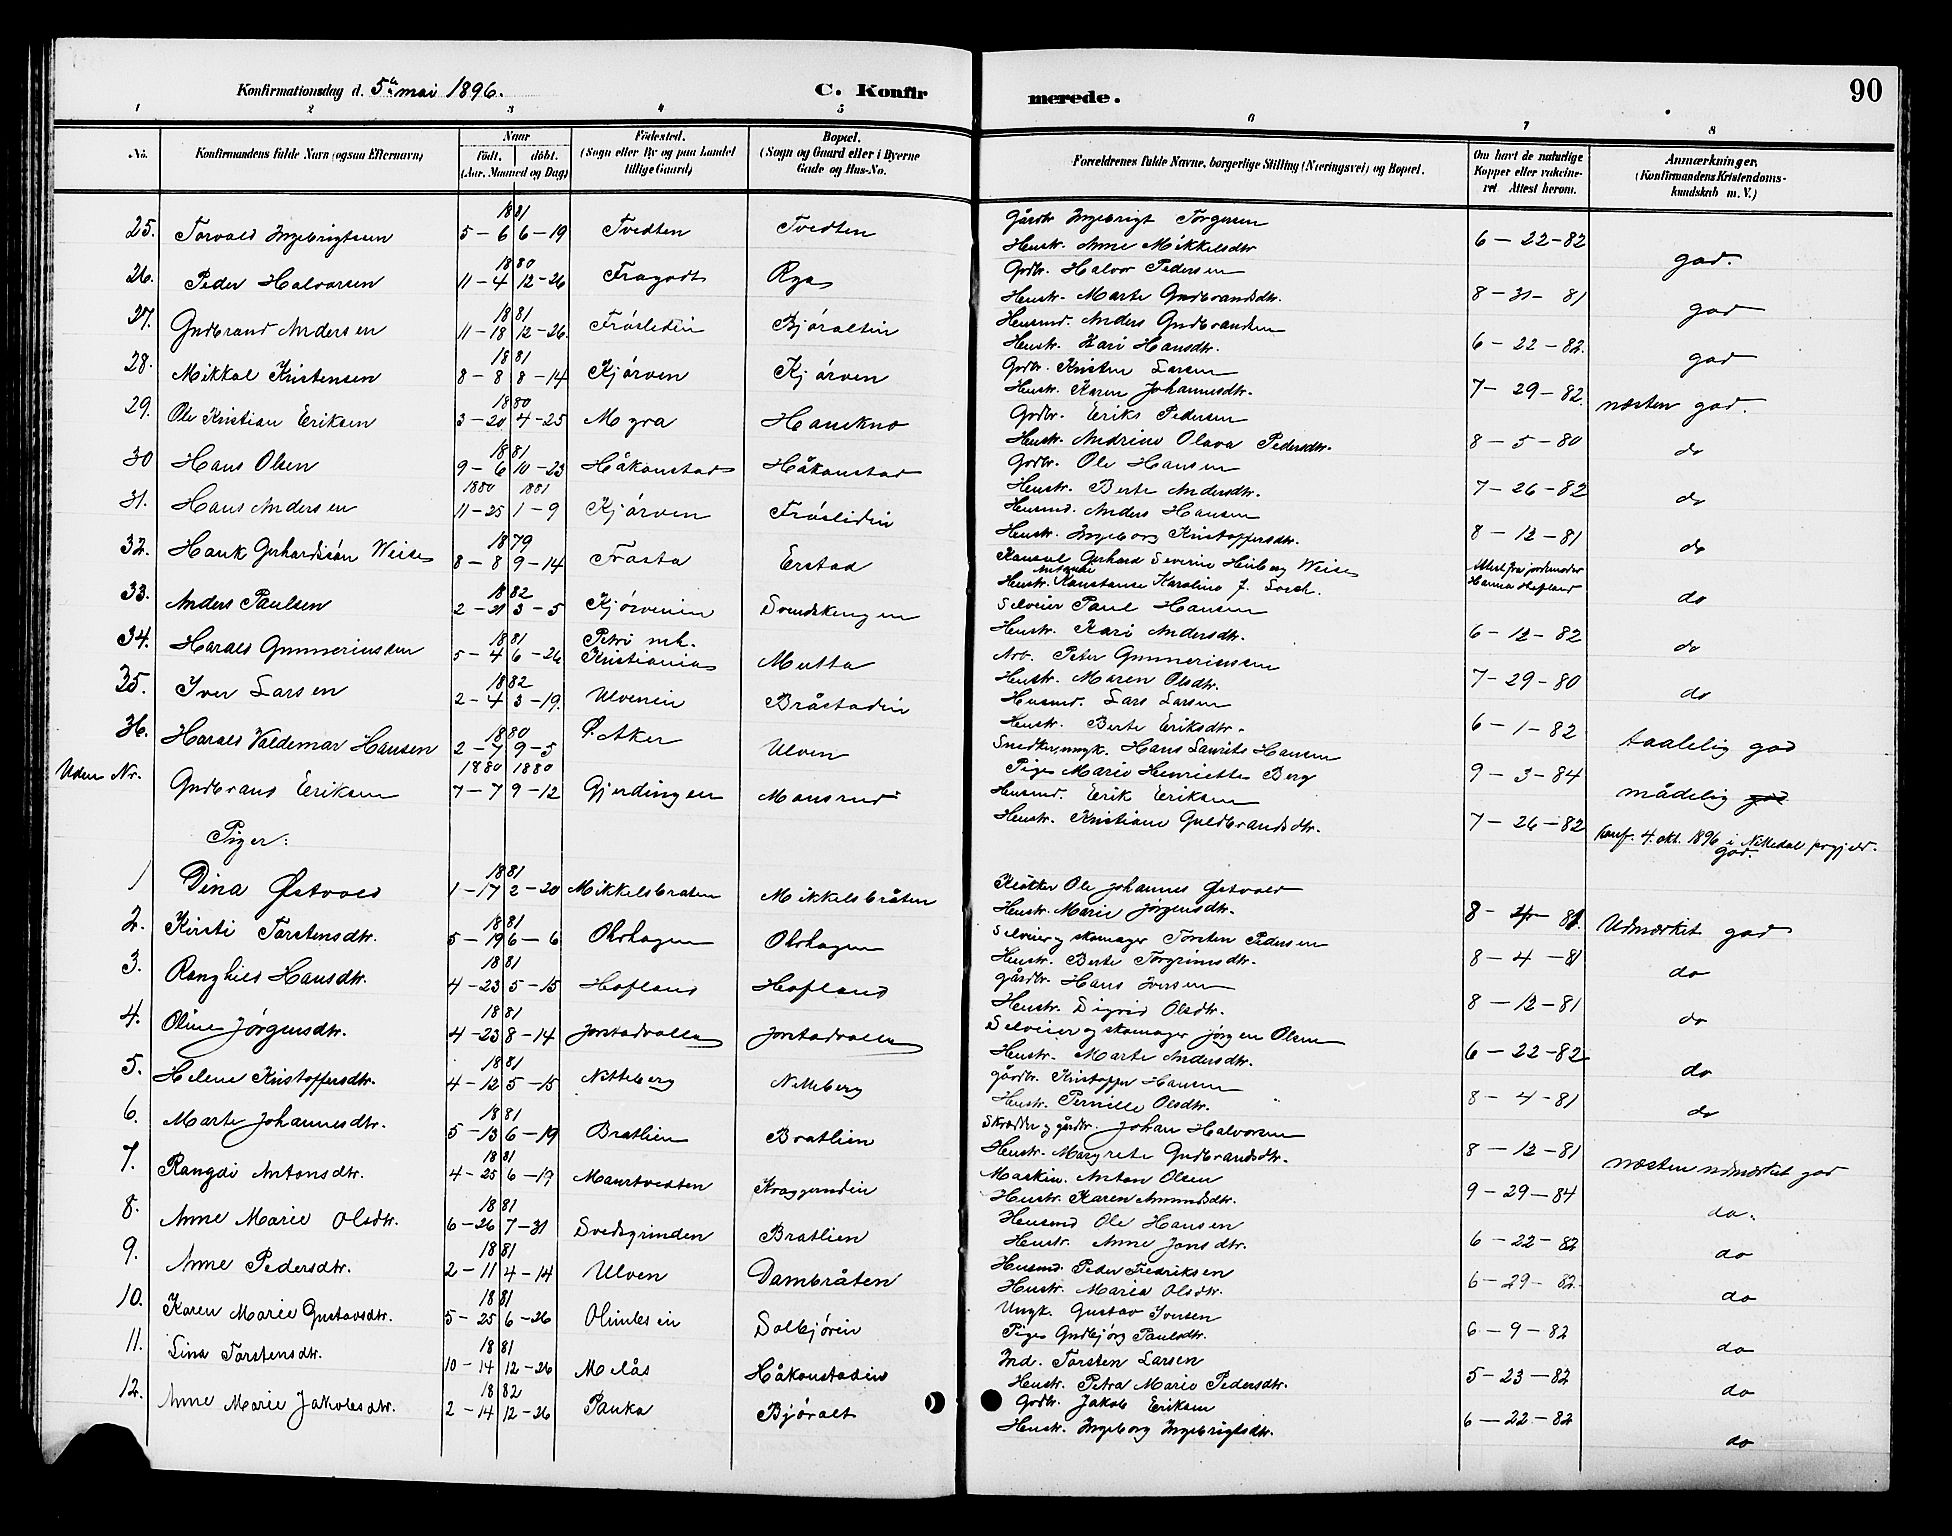 Konfirmationsdag d. 5te mai 1896. C. Konfirmerede. 90
1 2 3 4 5 6 7 8
No. Konfirmandens fulde Navn (ogsaa Efternavn) Naar födt. döbt. (Aar, Maaned og Dag) Födested. (Sogn eller By og paa Landet tillige Gaard) Bopæl. (Sogn og Gaard eller i Byerne Gade og Hus-No. Forældrenes fulde Navne, borgerlige Stilling (Næringsvei) og Bopæl. Om havt de naturlige Kopper eller vaccineret. Attest herom. Anmærkninger. (Konfirmandens Kristendomskundskab m. V.)
25. Torvald Ingebrigtsen 1881 5-6 6-19 Tvedten Tvedten Gårdbr. Ingebrigt Torgersen
Hustr. Anne Mikkelsdtr. 6-22-82 god.
26. Peder Halvorsen 1880 11-4 12-26 Rya Grdbr. Halvor Pedersen
Hustr. Marte Gudbrandsdtr. 8-31-81 god
27. Gudbrand Andersen 1881 11-18 12-26. Fröslidin Björaltin Husmd. Anders Gudbrandsen
Hustr. Kari Hansdtr. 6-22-82. god
28. Mikkal Kristensen 1881 8-8 8-14 Kjörven Kjörven Grdbr. Kristen Larsen
Hustr. Karen Johannesdtr. 7-29-82. næsten god.
29. Ole Kristian Eriksen 1880 3-20 4-25 Myra Hanekno Grdbr. Eriks Pedersen
Hustr. Andrine Olava Pedersdtr. 8-5-80 do
30 Hans Olsen 1881 9-6 10-23 Håkonstad Håkonstad Grdbr. Ole Hansen
Hustr. Berte Andersdtr. 7-26-82 do
31. Hans Andersen 1880 1881 11-25 1-9 Kjörven Fröslidin Husmd. Anders Hansen
Hustr. Ingeborg Kristoffersdtr. 8-12-81 do
32. Hauk Gerhardisön Weise 1879 8-8 9-14 Frösta Erstad Konsul Gerhard Severin Heiberg Weise
Hustr. Antonie Konstanse Karoline J. Attest fra jordmoder Hanna Hofland do
33. Anders Paulsen 1882 2-21 3-5 Kjörvenin Svendskengen Selveier Paul Hansen
Hustr. Kari Andersdtr. 6-12-82 do
34. Harald Gunneriussen 1881 5-4 6-26 Petri mh. Kristiania Mutta Arb. Peter Gunneriussen
Hustr. Maren Olsdtr. 7-29-80 do
35. Iver Larsen 1882 2-4 3-19. Ulvenin Bråstadin Husmd. Lars Larsen
Hustr. Berte Eriksdtr. 6-1-82 taalelig god
36. Harald Valdemar Hansen 1880 2-7 9-5 Ö. Aker Ulven Snedker, ungk. Hans Laurits Hansen
Pige Marie Henriette Berg 9-3-84 mådelig god
Uden Nr. Gudbrand Eriksen 1880 1880 7-7 9-12 Gjerdingen Monsrud Husmd. Erik Eriksen
Hustr. Kristiane Guldbrandsdtr. 7-26-82 konf. 4. okt. 1896 i Nittedal prgjeld. god.
Piger:
1 Dina Østvold 1881 1-17 2-20 Mikkelsbråten Mikkelsbråten Klokker Ole Johannes Østvold
Hustr. Marie Jörgensdtr. 8-4-81. Udmærket god
2. Kirsti Torstensdtr. 1881 5-19 6-6 Olrhagen Olrhagen Selveier og skomager Torsten Pedersen
Hustr. Berte Torgrimsdtr. 8-4-81 do
3. Ranghild Hansdtr. 1881 4-23 5-15 Hofland Hofland Gårdbr. Hans Iversen
Hustr. Sigrid Olsdtr. 8-12-81 do
4. Oline Jörgensdtr. 1881 4-23 8-14 Jorstadvolla Jorstadvolla Selveier og skomager Jörgen Olsen
Hustr. Marte Andersdtr. 6-22-82 do
5. Helene Kristoffersdtr. 1881 4-12 5-15 Nitteberg Nitteberg gårdbr. Kristoffer Hansen
Hustr. Pernille Olsdtr. 8-4-81 do
6. Marte Johannesdtr. 1881 5-13 6-19 Bratlien Bratlien Skrædder og gårdbr. Johan Halvorsen
Hustr. Margrete Gudbrandsdtr. 8-12-81 næsten udmærket god
7. Rangdi Antonsdtr. 1881 4-25 6-19 Maurtvedten Kraggerudin Maskin. Anton Olsen
Hustr. Karen Amundsdtr. 9-29-84 do.
8. Anne Marie Olsdtr. 1881 6-26 7-31 Svedsgrinden Bratlien Husmd Ole Hansen
Hustr. Anne Jonsdtr. 6-22-82 do
9. Anne Pedersdtr. 1881 2-11 4-14 Ulven Dambråten Husmd. Peder Fredriksen
Hustr. Maria Olsdtr. 6-29-82. do
10. Karen Marie Gustavsdtr. 1881 5-25 6-26 Olimbsin Solbjörin Ungk. Gustav Iversen
Pige Gudbjörg Paulsdtr. 6-9-82 do
11. Lina Torstensdtr. 1881 10-14 12-26 Melås Håkonstadin Ind. Torsten Larsen
Hustr. Petra Marie Pedersdtr. 5-23-82 do
12. Anne Marie Jakobsdtr. 1882 2-14 12-26 Pauka Björalt Grdbr. Jakob Eriksen
Hustr. Ingeborg Ingebrigtsdtr. 6-22-82 do